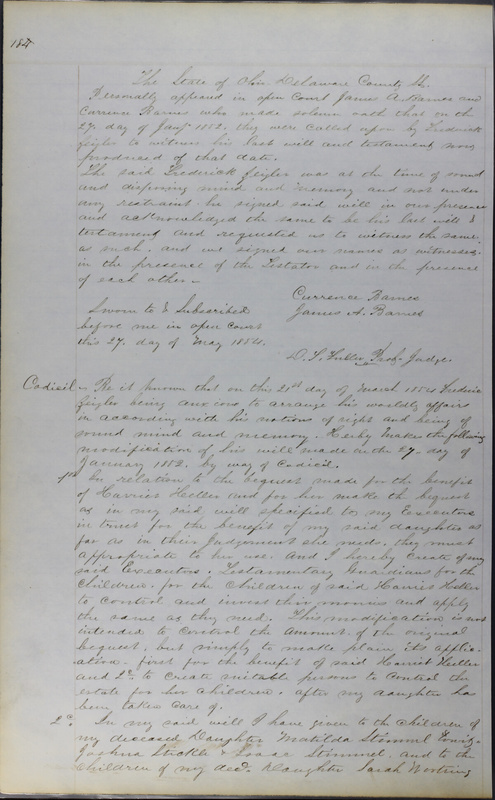 184
The State of Ohio Delaware County Ss.
Personally appeared in open Court James A. Barnes and
Currence Barnes who made solemn oath that on the
27. day of Jany 1852. they were called upon by Frederick
Zeigler to witness his last will and testament, now
produced of that date.
The said Frederick Zeigler was at the time of sound
and disposing mind and memory and not under
any restraint. he signed said will in our presence
and acknowledged the same to be his last will &
testament and requested us to witness the same
as such. and we signed our names as witnesses.
in the presence of the Testator and in the presence
of each other –
Currence Barnes
James A. Barnes
Sworn to & Subscribed
before me in open Court
this 27. day of May 1854.
D. T. Fuller Prob. Judge.
Codicil – Be it known that on this 21st day of March 1854 Frederic
Zeigler being anxious to arrange his worldly affairs
in according with his notions of right and being of
sound mind and memory. Herby Makes the following
modification of his will made on the 27 day of
January 1852. by way of Codicil.
1st In relation to the bequest made for the benefit
of Harriet Heller and for her make the bequest
as in my said will specified to my Executors
in trust for the benefit of my said daughter as
far as in their Judgement she needs. they must
appropriate to her use. And I hereby create of my
said Executors. Testamentary Guardians for the
Children. for the Children of said Harriet Heller
to control and invest their monies and apply
the same as they need. This modification is not
intended to control the amount of the original
bequest. but simply to make plain its applic-
ation. first for the benefit of said Harriet Heller
and 2d. to create suitable persons to control the
estate for her children. after my daughter has
been taken care of.
2d. In my said will I have given to the children of
my deceased Daughter Matilda Stimmel
Joshua Stickle & Stimmel. and to the
children of my decd. Daughter Sarah